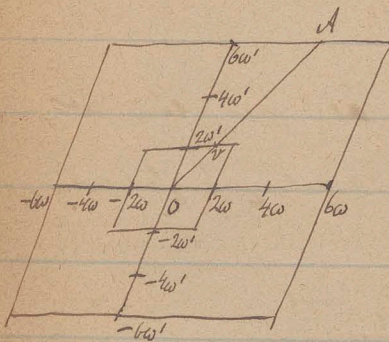 A
6ω'
4ω'
2ω'
v
-6ω -4ω -2ω O 2ω 4ω 6ω
-2ω'
-4ω'
-6ω'